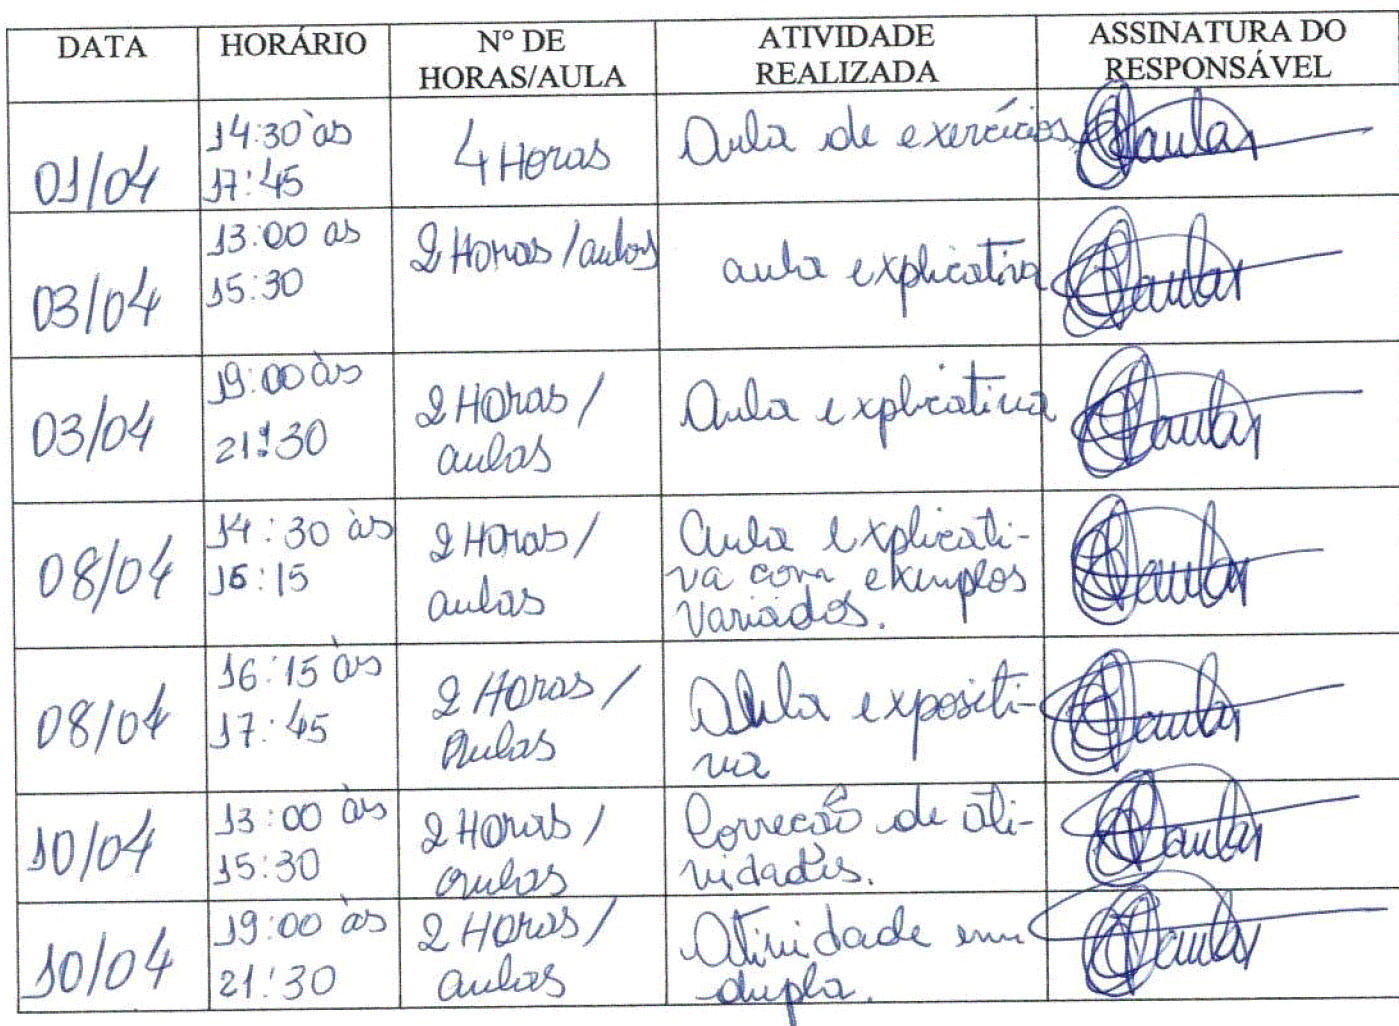 DATA HORÁRIO N° DE HORAS/AULA ATIVIDADE REALIZADA ASSINATURA DO RESPONSÁVEL
01/04
14:30 às
17:45
4 Horas
Aula de exercícios
03/04
13:00 as
15:30
2 Horas/aulas
aula explicativa
03/04
19:00 às
21:30
2 Horas/
aulas
Aula explicativa
08/04
14:30 às
16:15
2 Horas/
aulas
Aula explicati-
va com exemplos
variados.
08/04
16:15 às
17:45
2 Horas/
Aulas
Aula expositi-
va
10/04
13:00 às
15:30
2 Horas/
aulas
Correcão de ati-
vidades.
10/04
19:00 às
21:30
2 Horas/
aulas
Atividade em
dupla.